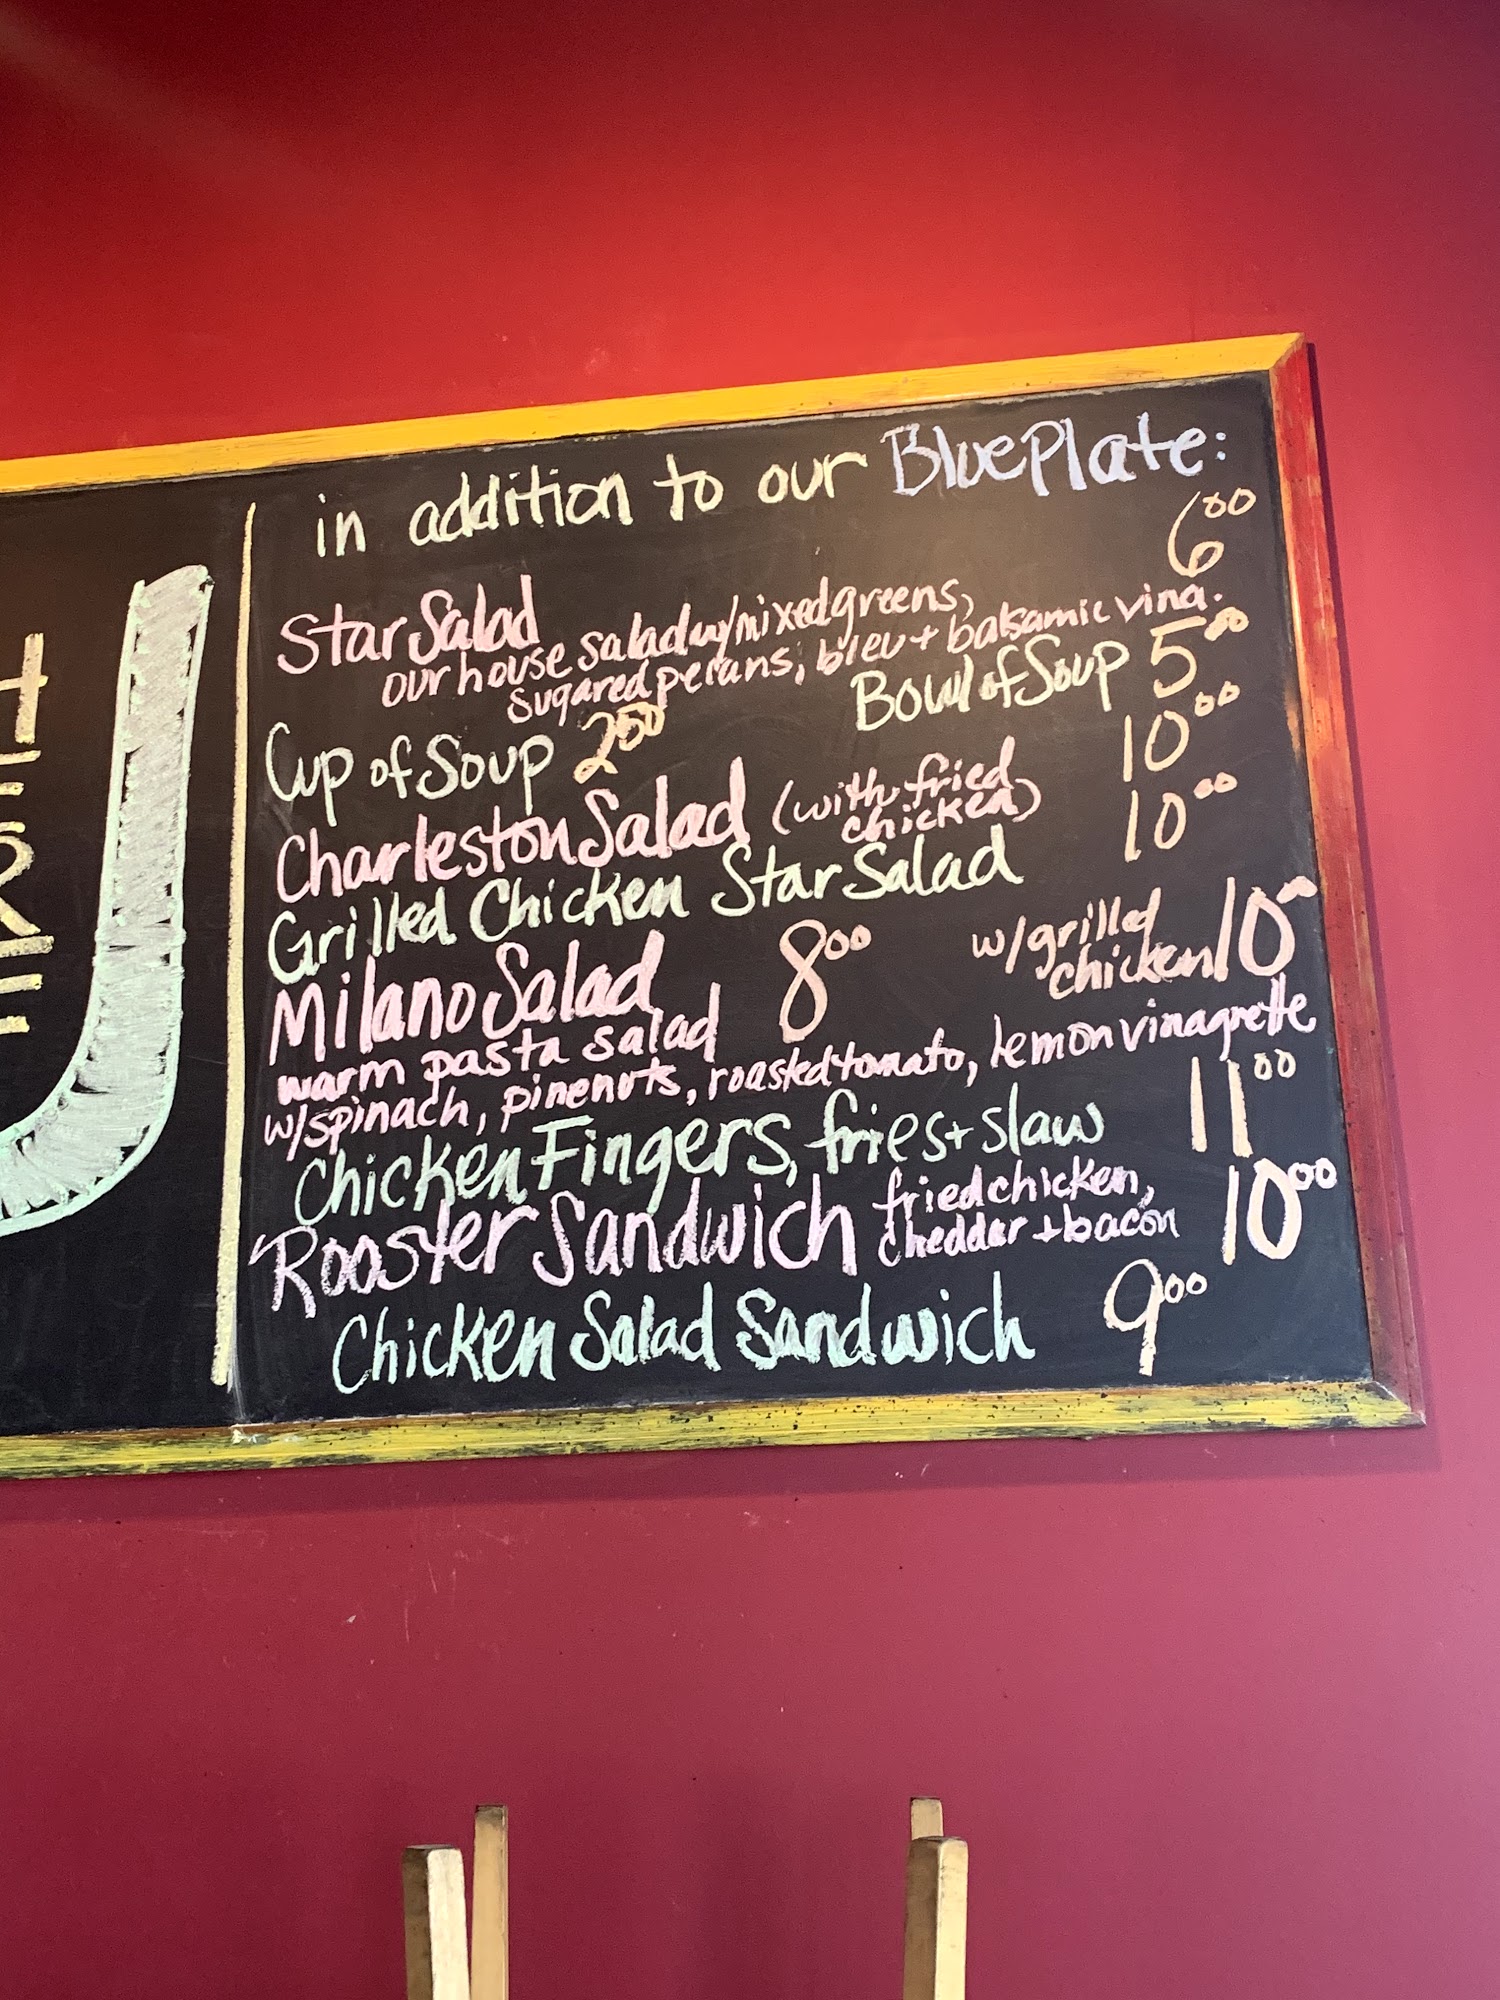 in addition to our Blue Plate:
Star Salad 6.00
our house salad w/mixed greens,
sugared pecans, bleu + balsamic vina.
Cup of Soup 2.00 Bowl of Soup 5.00
Charleston Salad (with fried chicken) 10.00
Grilled Chicken Star Salad 10.00
Milano Salad 8.00 w/grilled chicken 10.00
warm pasta salad
w/spinach, pinenuts, roasted tomato, lemon vinagrette
Chicken Fingers, fries + slaw 11.00
Rooster Sandwich fried chicken, cheddar + bacon 10.00
Chicken Salad Sandwich 9.00